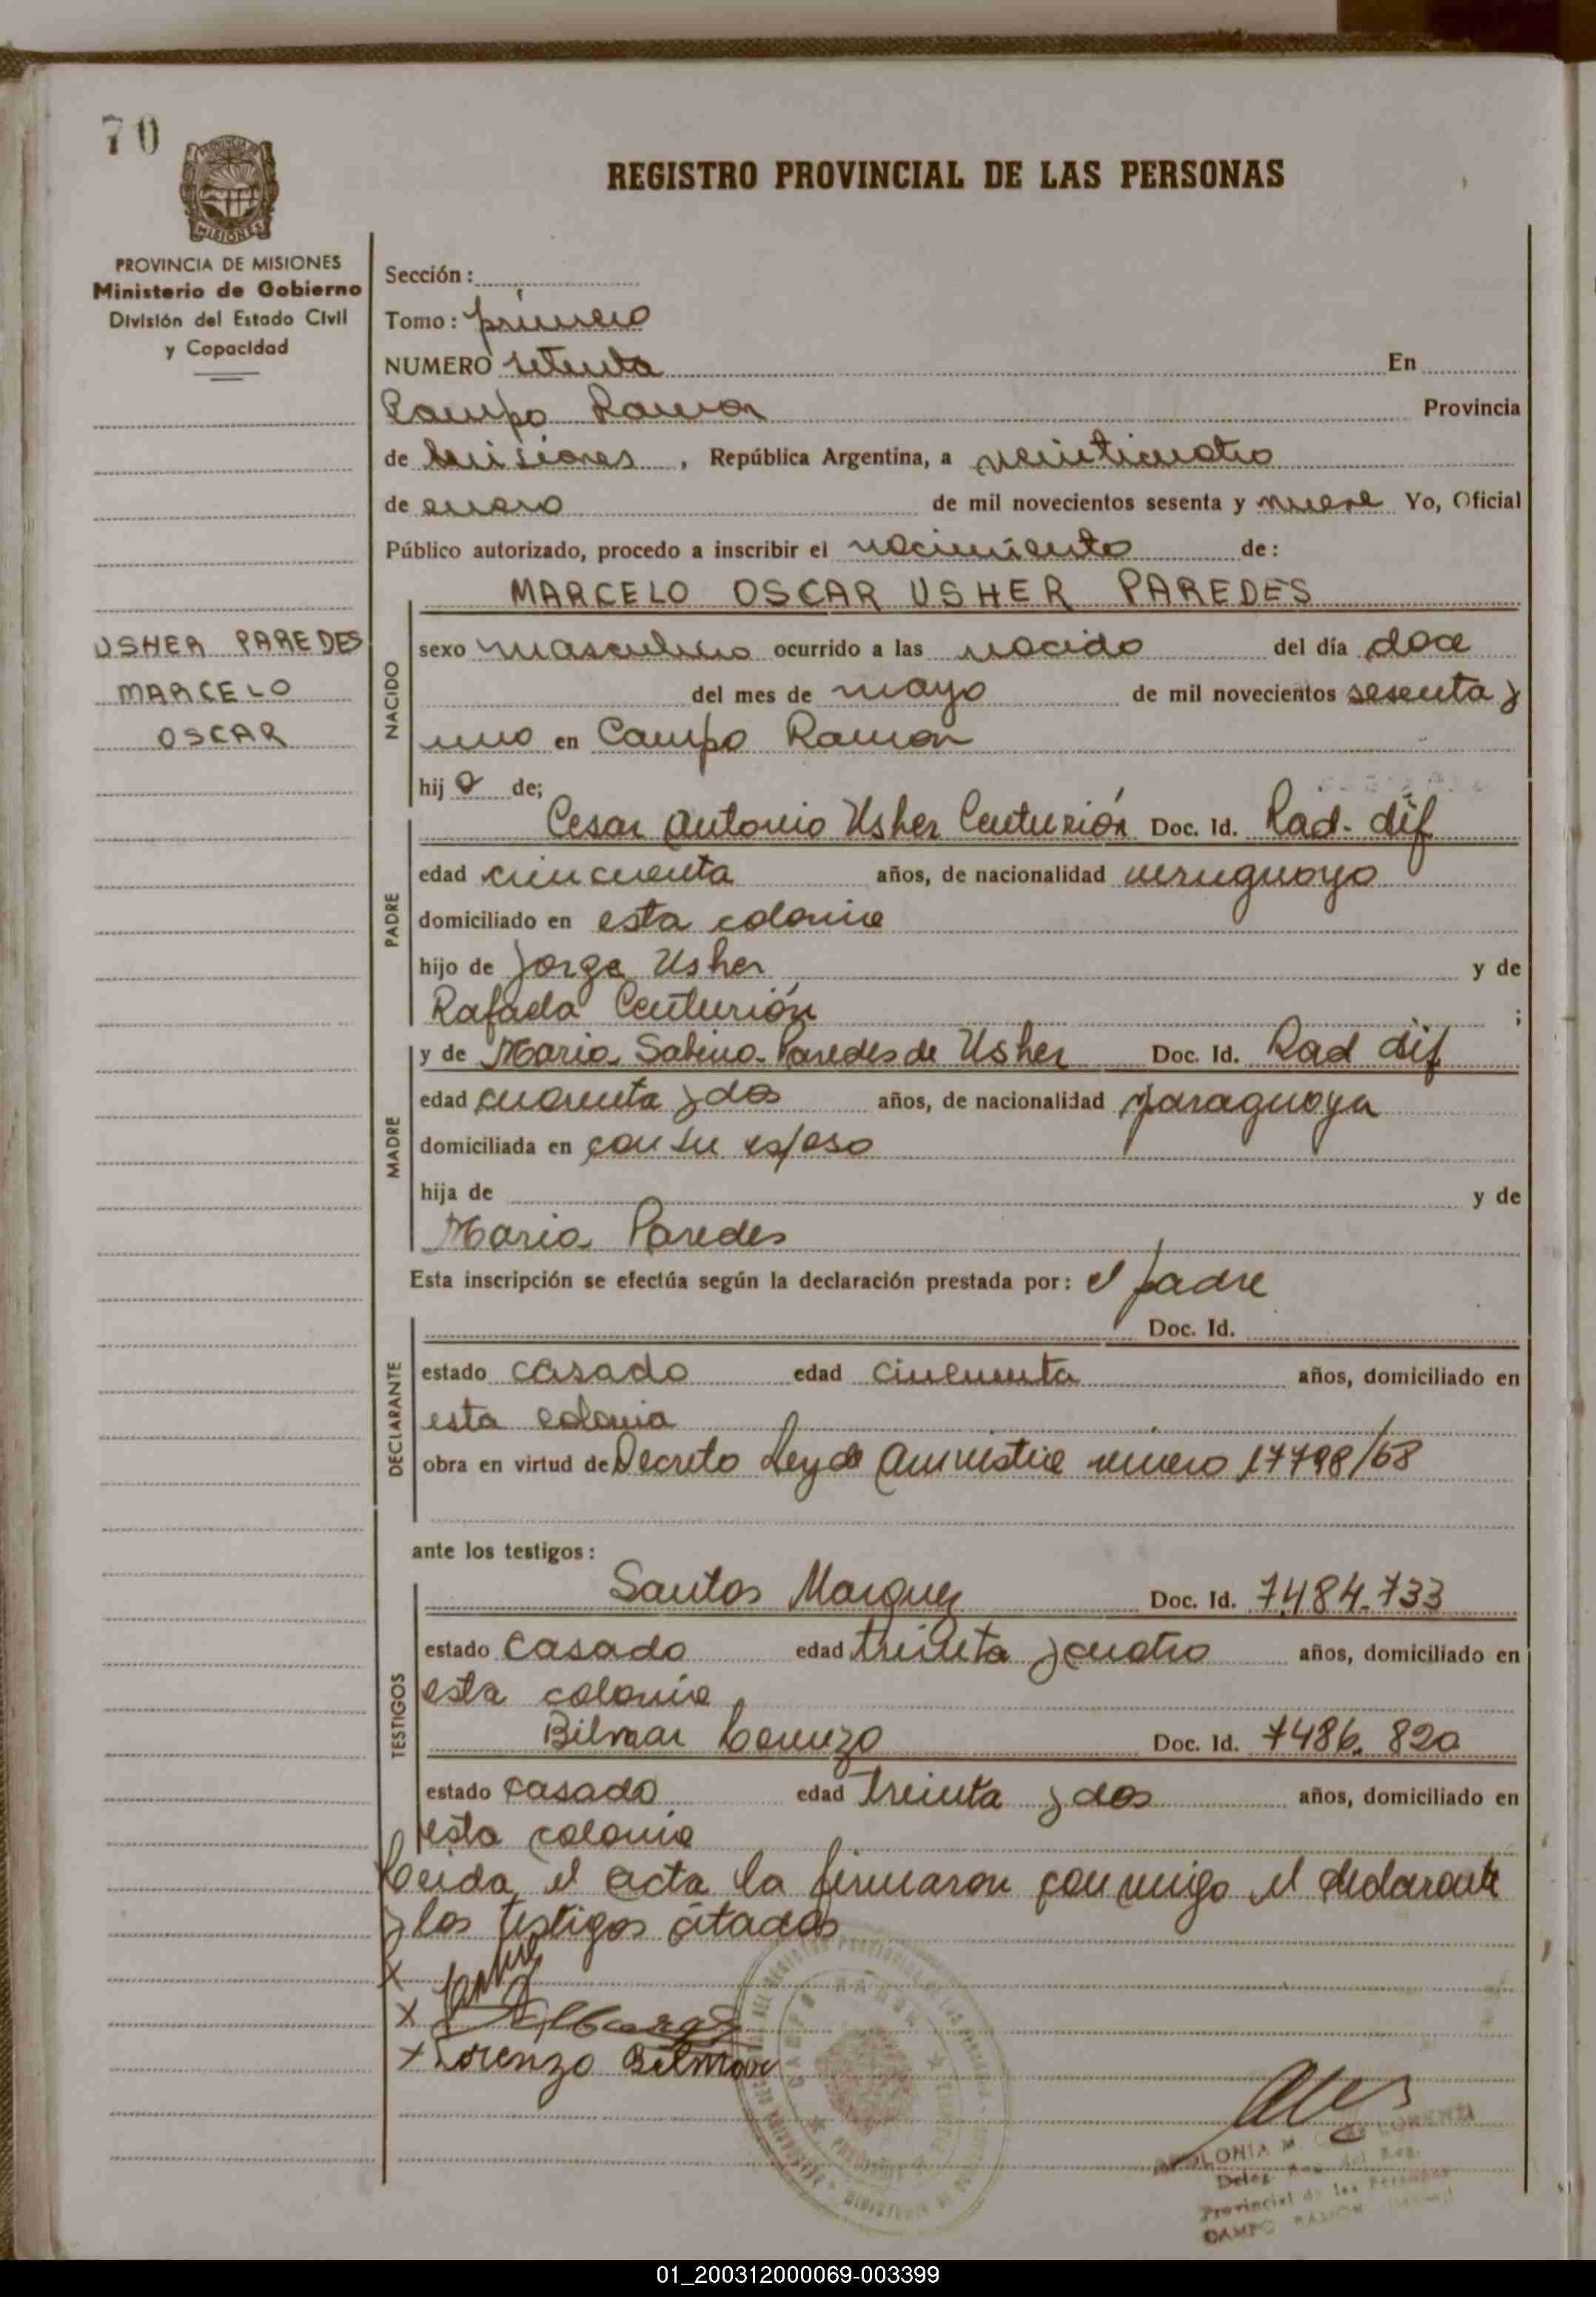 70
PROVINCIA DE
MISIONES
PROVINCIA DE MISIONES
Ministerio de Gobierno
División del Estado Civil
y Capacidad
USHER PAREDES
MARCELO
OSCAR
REGISTRO PROVINCIAL DE LAS PERSONAS
Sección:
Tomo: primero
NUMERO setenta En
Campo Ramon Provincia
de Misiones, República Argentina, a veinticuatro
de enero de mil novecientos sesenta y nueve Yo, Oficial
Público autorizado, procedo a inscribir el nacimiento de:
MARCELO OSCAR USHER PAREDES
NACIDO
sexo masculino ocurrido a las nacido del día doce
del mes de mayo de mil novecientos sesenta y
uno en Campo Ramon
hijo de;
PADRE
Cesar Antonio Usher Centurión Doc. Id. Rad. dif
edad cincuenta años, de nacionalidad uruguayo
domiciliado en esta colonia
hijo de Jorge Usher y de
Rafaela Centurión ;
MADRE
y de Maria Sabina Paredes de Usher Doc. Id. Rad dif
edad cuarenta y dos años, de nacionalidad paraguaya
domiciliada en con su esposo
hija de y de
Maria Paredes
Esta inscripción se efectúa según la declaración prestada por: el padre
DECLARANTE
Doc. Id.
estado casado edad cincuenta años, domiciliado en
esta colonia
obra en virtud de Decreto Ley de Amnistia numero 17798/68
ante los testigos:
TESTIGOS
Santos Marquez Doc. Id. 7.484.733
estado casado edad treinta y cuatro años, domiciliado en
esta colonia
Bilmar Lorenzo Doc. Id. 7486.820
estado casado edad treinta y dos años, domiciliado en
esta colonia
Leida el acta la firmaron conmigo el declarante
y los testigos citados
X
X
X Lorenzo Bilmar
CAMPO RAMON
APOLONIA M. LORENZ
Deleg. del Reg.
Provincial de las Personas
CAMPO RAMON
01_200312000069-003399